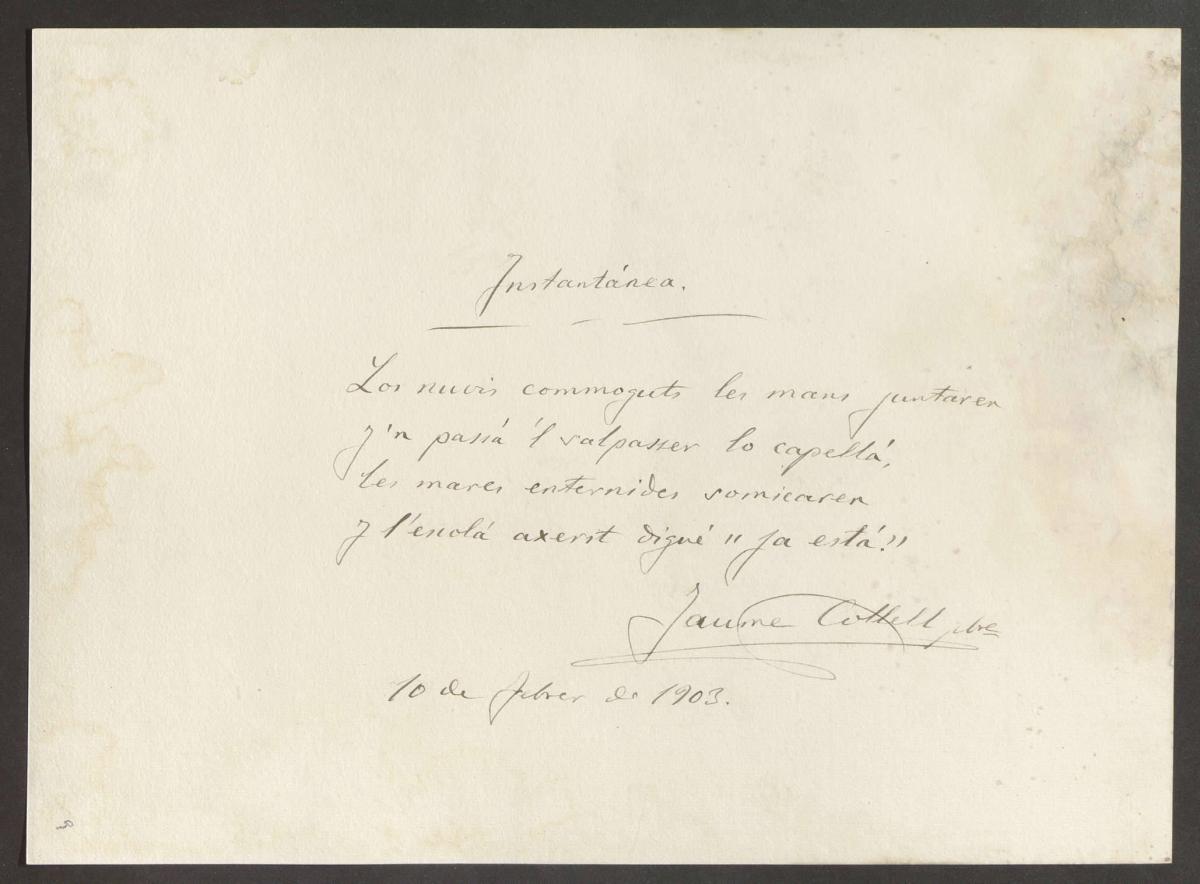 Instantánea.
Los nuvis commoguts les mans juntaren
y'n passá 'l salpasser lo capellá,
les mares enternides somicaren
y l'escolá axerit digué "ja está!"
Jaume Collell pbre
10 de febrer de 1903.